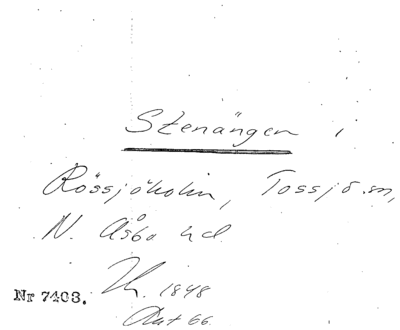 Stenängen,
Rössjöholm, Tossjö sn,
N. Åsbo hd
1848
Nr 7403.
Akt 66